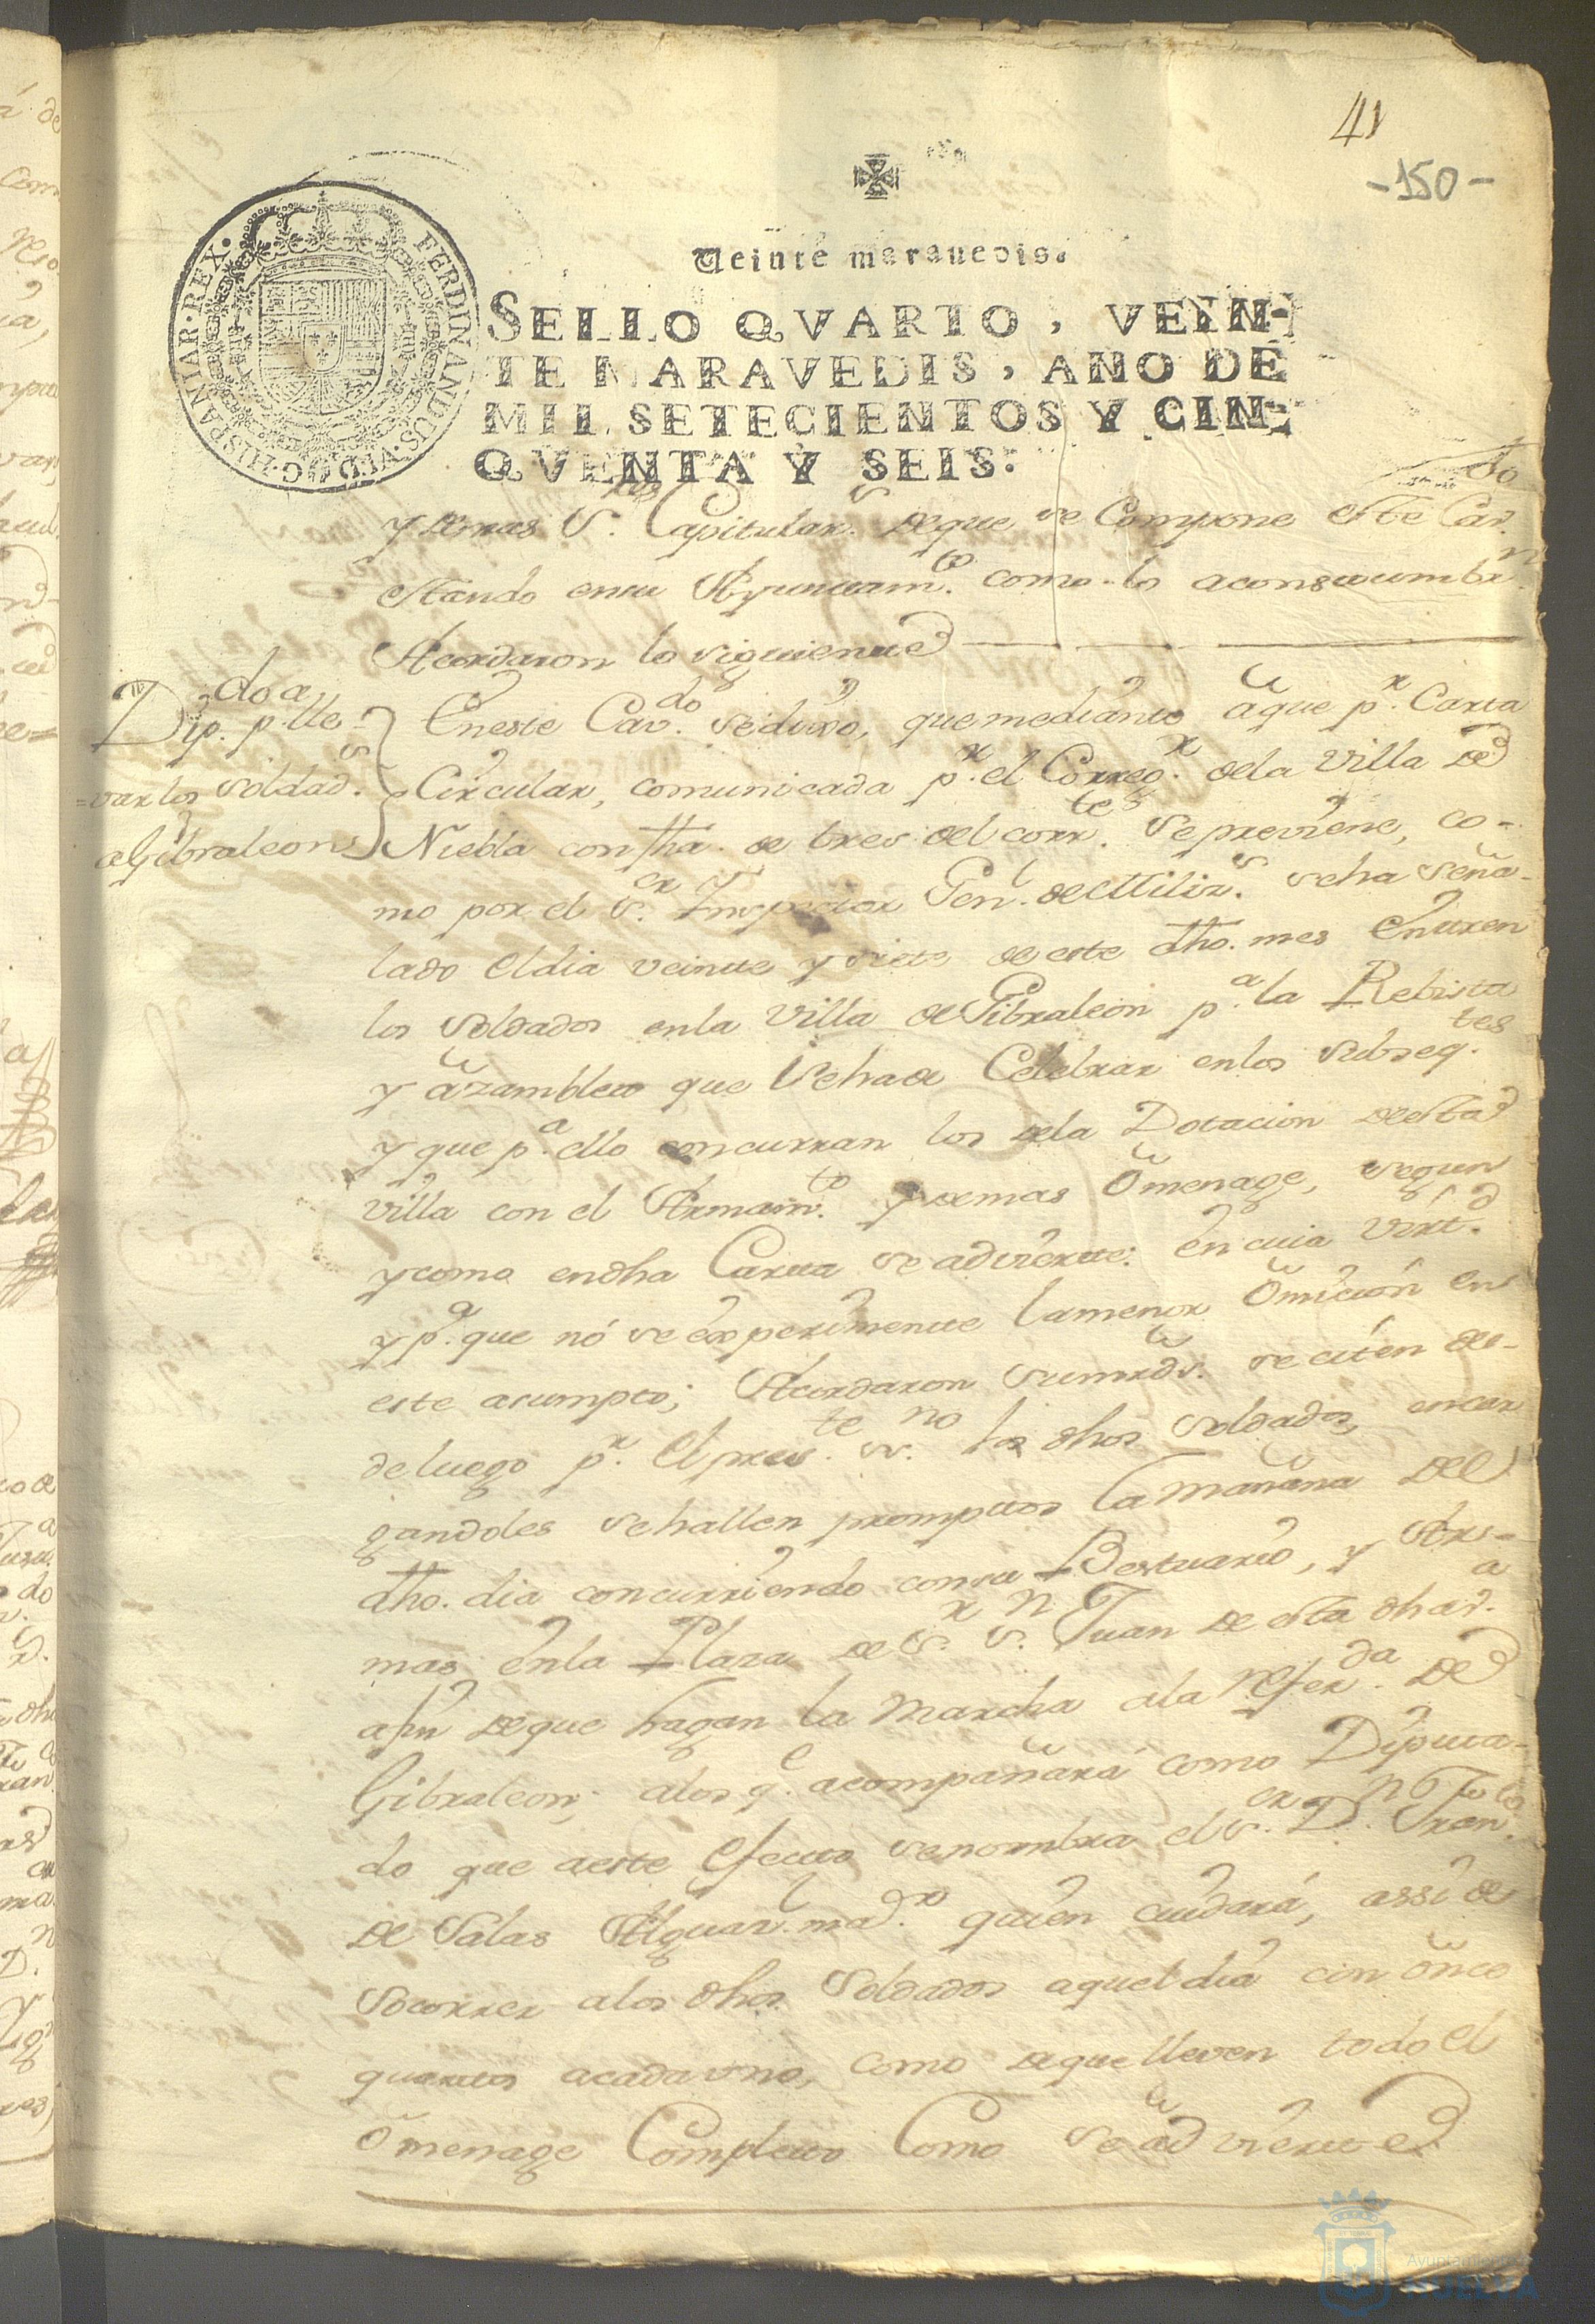 41
-150-
Veinte maravedis.
SELLO QVARTO, VEIN-
TE MARAVEDIS, AÑO DE
MIL SETECIENTOS Y CIN-
QVENTA Y SEIS.
FERDINANDUS·VI·D·G·HISPANIAR·REX·
y demas S.res Capitular.s de que se Compone este Cav.do
estando en su Ayuntam.to como lo aconstumbr.n
Acordaron lo siguiente
Dip.do pa lle-
var los soldad.s
a Gibraleon
En este Cav.do se dixo, que mediante a que p.r Carta
Circular, comunicada p.r el Correg.r de la Villa de
Niebla con fha. de tres del corr.te se previene, co-
mo por el S.or Inspector Gen.l de Miliz.s se ha seña-
lado el dia veinte y siete de este dho. mes entren
los soldados en la Villa de Gibraleon p.a la Rebista
y azamblea que se ha de Celebrar en los subseq.tes
y que p.a ello concurran los de la Dotacion de esta
villa con el Armam.to y demas omenage, segun
y como en dha Carta se advierte: en cuia virt.d
y p.a que nó se experimente la menor omición en
este asumpto; Acordaron sus mrds. se citen des-
de luego p.r el pres.te ss.no los dhos soldados, encar
gandoles se hallen promptos la mañana del
dho. dia concurriendo con su Bestuario, y Ar-
mas en la Plaza de S.r S.n Juan de esta dha v.a
a fin de que hagan la Marcha a la refer.da de
Gibraleon; a los q.e acompañará como Diputa-
do que a este efecto se nombra el S.or D.n Fran.co
de Salas Alguar.l ma.or quien cuidará, assi de
socorrer a los dhos. soldados aquel dia con onze
quartos a cada uno, como de que lleven todo el
omenage Completo Como se advierte
Ayuntamiento
HUELVA